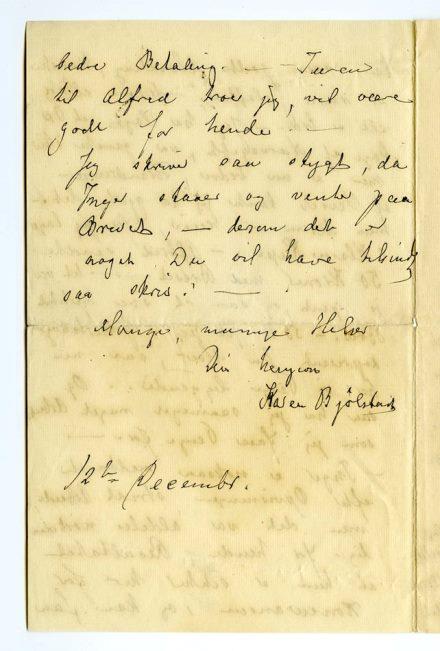 bedre Betaling. — Turen
til Alfred troer jeg, vil være
godt for hende —
Jeg skriver saa stygt, da
Inger staaer og venter paa
Brevet, — dersom det er
noget Du vil have tilsendt
saa skriv! —
Mange, mange Hilsner
Din hengivne
Karen Bjölstad
12te Decembr.